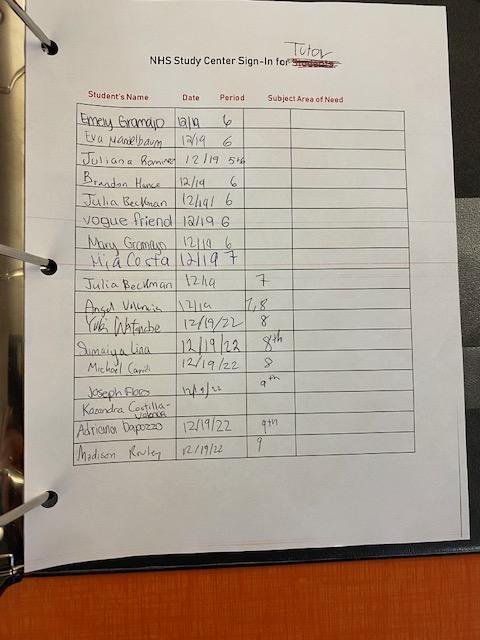 Tutor
NHS Study Center Sign-In for Students
Student's Name Date Period Subject Area of Need
Emely Gramajo 12/19 6
Eva Mandelbaum 12/19 6
Juliana Ramirez 12/19 5+6
Brandon Hance 12/19 6
Julia Beckman 12/19/ 6
vogue friend 12/19 6
Mary Gramajo 12/19 6
Mia Costa 12/19 7
Julia Beckman 12/19 7
Angel Valencia 12/19 7,8
Yuki Watanabe 12/19/22 8
Sumaiya Lina 12/19/22 8th
Michael 12/19/22 8
Joseph Flores 12/19/22 9th
Kazandra Costilla-
Adriana Dapozzo 12/19/22 9th
Madison 12/19/22 9